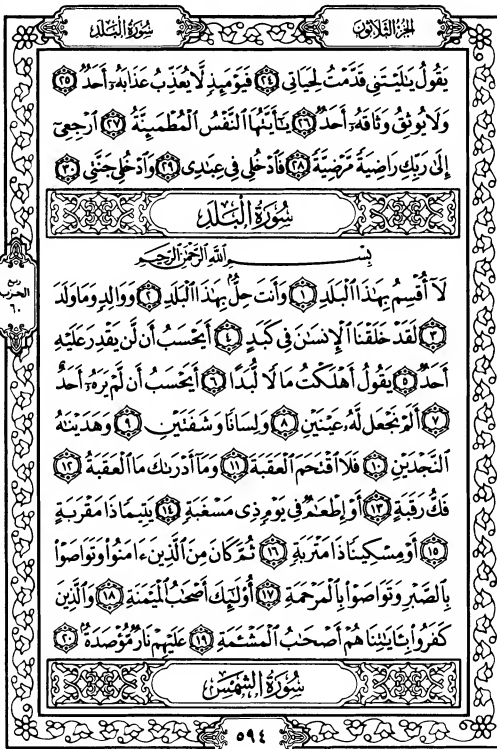 الجُزْءُ الثَّلَاثُونَ
سُورَةُ الْبَلَدِ
يَقُولُ يَـٰلَيْتَنِى قَدَّمْتُ لِحَيَاتِى ٢٤ فَيَوْمَئِذٍ لَّا يُعَذِّبُ عَذَابَهُۥٓ أَحَدٌ ٢٥
وَلَا يُوثِقُ وَثَاقَهُۥٓ أَحَدٌ ٢٦ يَـٰٓأَيَّتُهَا ٱلنَّفْسُ ٱلْمُطْمَئِنَّةُ ٢٧ ٱرْجِعِىٓ
إِلَىٰ رَبِّكِ رَاضِيَةً مَّرْضِيَّةً ٢٨ فَٱدْخُلِى فِى عِبَـٰدِى ٢٩ وَٱدْخُلِى جَنَّتِى ٣٠
سُورَةُ الْبَلَدِ
بِسْمِ ٱللَّهِ ٱلرَّحْمَـٰنِ ٱلرَّحِيمِ
لَآ أُقْسِمُ بِهَـٰذَا ٱلْبَلَدِ ١ وَأَنتَ حِلٌّۢ بِهَـٰذَا ٱلْبَلَدِ ٢ وَوَالِدٍ وَمَا وَلَدَ
٣ لَقَدْ خَلَقْنَا ٱلْإِنسَـٰنَ فِى كَبَدٍ ٤ أَيَحْسَبُ أَن لَّن يَقْدِرَ عَلَيْهِ
أَحَدٌ ٥ يَقُولُ أَهْلَكْتُ مَالًا لُّبَدًا ٦ أَيَحْسَبُ أَن لَّمْ يَرَهُۥٓ أَحَدٌ
٧ أَلَمْ نَجْعَل لَّهُۥ عَيْنَيْنِ ٨ وَلِسَانًا وَشَفَتَيْنِ ٩ وَهَدَيْنَـٰهُ
ٱلنَّجْدَيْنِ ١٠ فَلَا ٱقْتَحَمَ ٱلْعَقَبَةَ ١١ وَمَآ أَدْرَىٰكَ مَا ٱلْعَقَبَةُ ١٢
فَكُّ رَقَبَةٍ ١٣ أَوْ إِطْعَـٰمٌ فِى يَوْمٍ ذِى مَسْغَبَةٍ ١٤ يَتِيمًا ذَا مَقْرَبَةٍ
١٥ أَوْ مِسْكِينًا ذَا مَتْرَبَةٍ ١٦ ثُمَّ كَانَ مِنَ ٱلَّذِينَ ءَامَنُوا۟ وَتَوَاصَوْا۟
بِٱلصَّبْرِ وَتَوَاصَوْا۟ بِٱلْمَرْحَمَةِ ١٧ أُو۟لَـٰٓئِكَ أَصْحَـٰبُ ٱلْمَيْمَنَةِ ١٨ وَٱلَّذِينَ
كَفَرُوا۟ بِـَٔايَـٰتِنَا هُمْ أَصْحَـٰبُ ٱلْمَشْـَٔمَةِ ١٩ عَلَيْهِمْ نَارٌ مُّؤْصَدَةٌۢ ٢٠
سُورَةُ الشَّمْسِ
ربع
الحزب
٦٠
٥٩٤